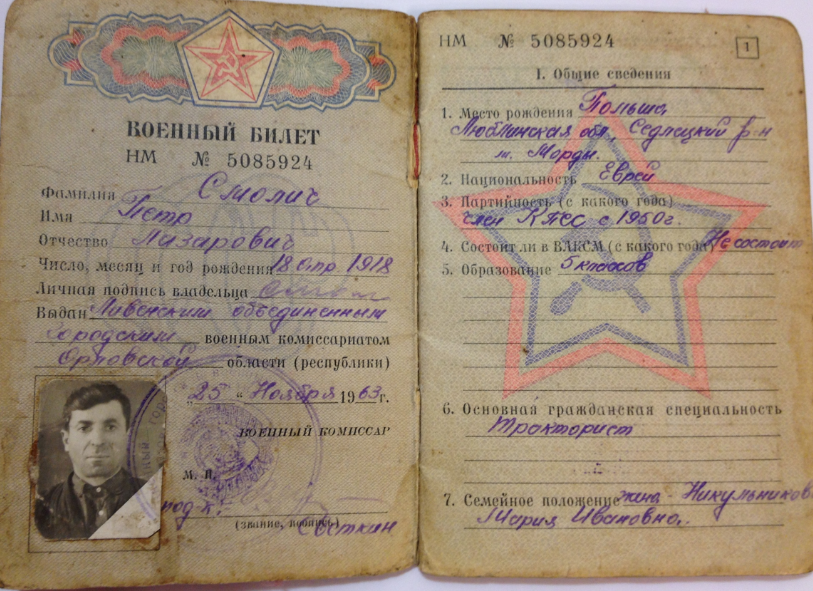 ВОЕННЫЙ БИЛЕТ
НМ № 5085924
Фамилия Смолич
Имя Петр
Отчество Лазарович
Число, месяц и год рождения 18 апр. 1918
Личная подпись владельца
Выдан Ливенским объединенным
городским военным комиссариатом
Орловской области (республики)
„25“ Ноября 1963 г.
ВОЕННЫЙ КОМИССАР
М. П.
подп.
(звание, подпись)
Светкин
НМ № 5085924
1
I. Общие сведения
1. Место рождения Польша,
Люблинская обл., Седлецкий р-н
м. Морды.
2. Национальность Еврей
3. Партийность (с какого года)
член КПСС с 1950 г.
4. Состоит ли в ВЛКСМ (с какого года) Не состоит
5. Образование 5 классов
6. Основная гражданская специальность
Тракторист
7. Семейное положение жена - Никульников
Мария Ивановна.